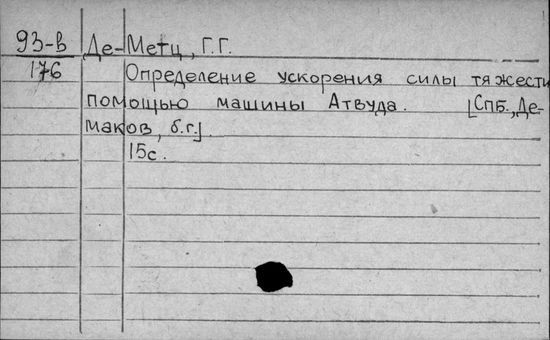 93-в Де-Метц, Г.Г.
176 Определение ускорения силы тяжести
помощью машины Атвуда. [СПБ., Де-
маков, б.г.].
15с.